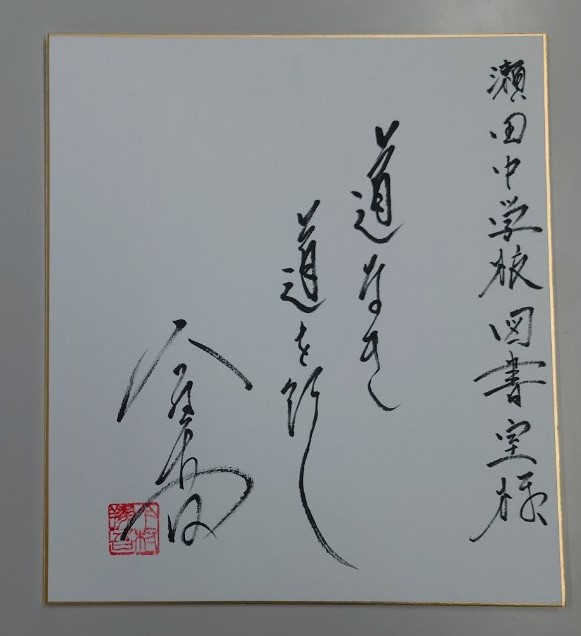 瀬田中学校図書室様
道なき
道を行く